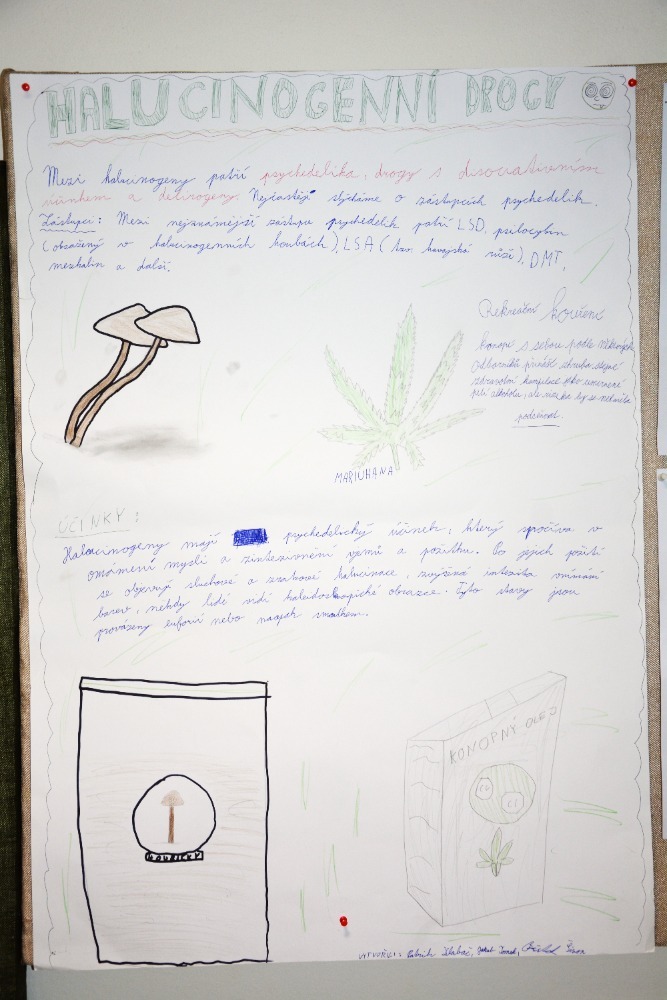 HALUCINOGENNÍ DROGY
Mezi halucinogeny patří psychedelika, drogy s disociativním
účinkem a delirogeny. Nejčastěji slýcháme o zástupcích psychedelik.
Zástupci: Mezi nejznámější zástupce psychedelik patří LSD, psilocybin
(obsažený v halucinogenních houbách), LSA (tzv. havajská růže), DMT,
meskalin a další.
Rekreační kouření
konopí s sebou podle některých
odborníků přináší zhruba stejné
zdravotní komplikace jako umírněné
pití alkoholu, ale rizika by se neměla
podceňovat.
MARIUHANA
ÚČINKY:
Halucinogeny mají psychedelický účinek, který spočívá v
omámení mysli a zintezivnění vjemů a požitku. Po jejich požití
se objevují sluchové a zrakové halucinace, zvýšená intezita vnímání
barev, někdy lidé vidí kaleidoskopické obrazce. Tyto stavy jsou
provázeny euforií nebo naopak smutkem.
KONOPNÝ OLEJ
HOUBIČKY
VYTVOŘILI: Jakub